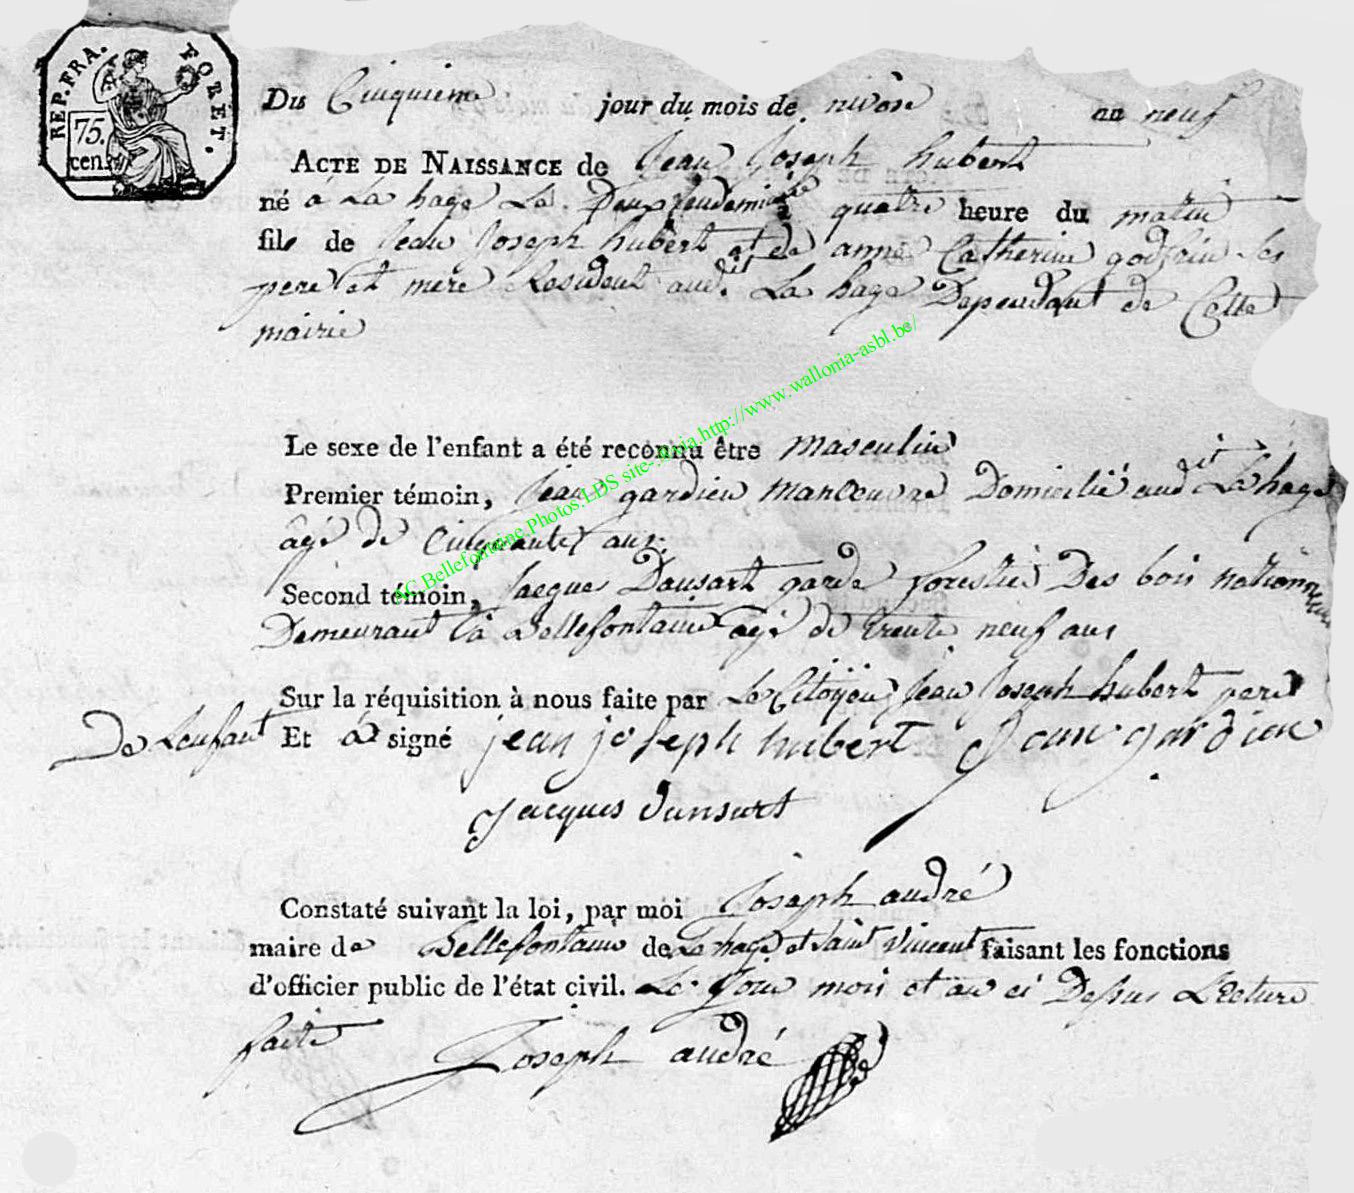 REP. FRA. FORÊT.
75.
cen.
Du Cinquieme jour du mois de nivose an neuf
Acte de Naissance de Jean Joseph hubert
né à La hage Le Deux quatre heure du matin
fils de Jean Joseph hubert et de anne Catherine godfrin Ses
pere et mere Resident aud.it La hage Dependant de Cette
mairie
Le sexe de l'enfant a été reconnu être masculin
Premier témoin, Jean gardien manoeuvre Domicilié audit La hage
âgé de Cinquante ans
Second témoin, Jacque Dansart garde forestié Des bois nationneaux
Demeurant à Bellefontaine agé de trente neuf ans
Sur la réquisition à nous faite par Le Citoyen Jean Joseph hubert pere
De Lenfant Et à signé jean joseph hubert Jean gardien
Jacques dansart
Constaté suivant la loi, par moi Joseph andré
maire de Bellefontaine de La hage et Saint Vincent faisant les fonctions
d'officier public de l'état civil. Le Jour mois et an ci Dessus Lecture
faite Joseph andré
AC.Bellefontaine.Photos.LDS site-.http://www.wallonia-asbl.be/